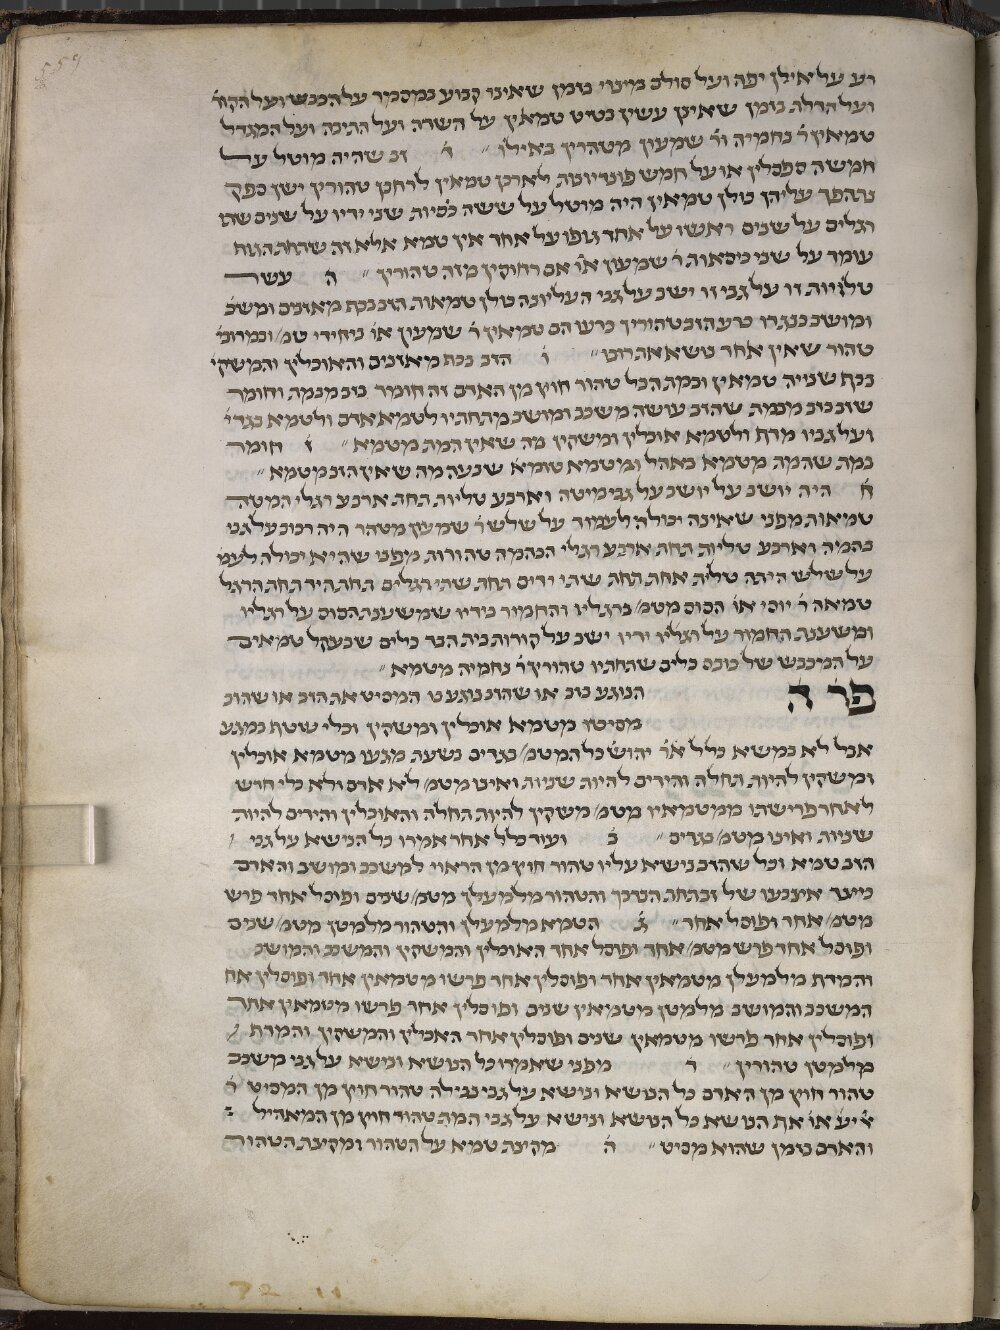 רע על אילן יפה ועל סולם מינוי בזמן שאינו קבוע במסמר על הכבש ועל הקור
ועל הדלת בזמן שאינן עשוין בטיט טמאין על השדה ועל התיבה ועל המגדל
טמאין ר׳ נחמיה ור׳ שמעון מטהרין באילו״ ד׳ זב שהיה מוטל על
חמשה ספסלין או על חמש פונדיונות לארכן טמאין לרחבן טהורין ישן ספק
נתהפך עליהן כולן טמאין היה מוטל על ששה כסיות שני ידיו על שנים שתי
רגלים על שנים ראשו על אחד גופו על אחד אין טמא אלא זה שתחת הגוף
עומד על שני כיסאות ר׳ שמעון או׳ אם רחוקין מזה טהורין״ ה׳ עשר
טליות זו על גבי זו ישב על גבי העליונה כולן טמאות הזב בכף מאזנים ומשכב
ומושב כנגדו כרע הזב טהורין כרעו הם טמאין ר׳ שמעון או׳ ביחידי טמ׳ ובמרובי׳
טהור שאין אחד נושא את רובו״ ו׳ הזב בכף מאזנים והאוכלין והמשקי׳
בכף שנייה טמאין ובמת הכל טהור חוץ מן האדם זה חומר בזב מבמת וחומר
שבזב מבמת שהזב עושה משכב ומושב מתחתיו לטמא אדם ולטמא בגדי׳
ועל גביו מדף ולטמא אוכלין ומשקין מה שאין המת מטמא״ ז׳ חומר
במת שהמת מטמא באהל ומטמא טומא שבעה מה שאין הזב מטמא״
ח׳ היה יושב על יושב על גבי מיטה וארבע טליות תחת ארבע רגלי המטה
טמאות מפני שאינה יכולה לעמוד על שלש ר׳ שמעון מטהר היה רכוב על גבי
בהמה וארבע טליות תחת ארבע רגלי הבהמה טהורות מפני שהיא יכולה לעמ׳
על שלש היתה טלית אחת תחת שתי ידים תחת שתי רגלים תחת היד תחת הרגל
טמאה ר׳ יוסי או׳ הסוס מטמ׳ ברגליו והחמור בידיו שמשענת הסוס על רגליו
ומשענת החמור על רגליו ידיו ישב על קורות בית הבד כלים שבעקל טמאים
על המכבש של כובס כלים שתחתיו טהורין ר׳ נחמיה מטמא״
פר׳ ה׳ הנוגע בזב או שהזב נוגע בו המסיט את הזב או שהזב
מסיטו מטמא אוכלין ומשקין וכלי שטף במגע
אבל לא במשא כלל או׳ ר׳ יהוש׳ כל המטמ׳ בגדים בשעת מגעו מטמא אוכלין
ומשקין להיות תחלה והידים להיות שניות ואינו מטמ׳ לא אדם ולא כלי חרש
לאחר פרישתו ממטמאיו מטמ׳ משקין להיות תחלה והאוכלין והידים להיות
שניות ואינו מטמ׳ בגדים״ ב׳ ועוד כלל אחר אמרו כל הנישא על גבי
הזב טמא וכל שהזב נישא עליו טהור חוץ מן הראוי למשכב ומושב והאדם
כיצד אצבעו של זב תחת הנדבך והטהור מלמעלן מטמ׳ שנים ופוסל אחד פרש
מטמ׳ אחד ופוסל אחד״ ג׳ הטמא מלמעלן והטהור מלמטן מטמ׳ שנים
ופוסל אחד פרש מטמ׳ אחד ופוסל אחד האוכלין והמשקין והמשכב והמושב
והמדף מלמעלן מטמאין אחד ופוסלין אחד פרשו מטמאין אחד ופוסלין אח
המשכב והמושב מלמטן מטמאין שנים ופוסלין אחד פרשו מטמאין אחד
ופוסלין אחד פרשו מטמאין שנים ופוסלין אחד האכלין והמשקין והמדף
מלמטן טהורין״ ד׳ מפני שאמרו כל הנושא ונישא על גבי משכב
טהור חוץ מן האדם כל הנושא ונישא על גבי נבילה טהור חוץ מן המסיט ר׳
אליע׳ או׳ אף הנושא כל הנושא ונישא על גבי המת טהור חוץ מן המאהיל
והאדם בזמן שהוא מסיט״ ה׳ מקצת טמא על הטהור ומקצת הטהור